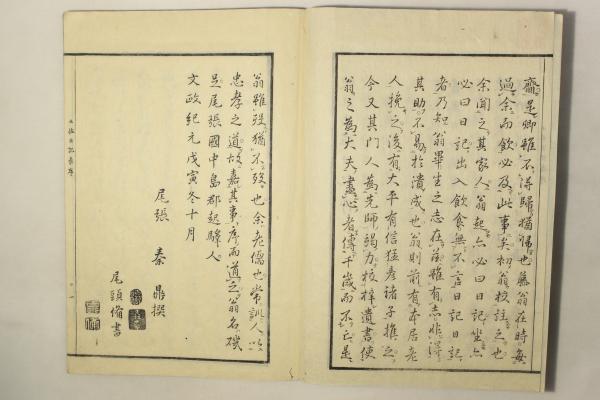 齋是卿雖不得歸猶歸也無翁在時每
過余而飲必及此事矣初翁校註之也
余聞之其家人翁起亦必曰日記坐亦
必曰日記出入飲食無不言日記日記
者乃知翁畢生之志在茲雖有志非得
其助不易於潰成也翁則前有本居老
人挽之後有大平有信猛彥諸子推之
今又其門人為先師竭力校梓遺書使
翁之為大夫盡心者傳千歲而不亡是
翁雖歿猶不歿也余老儒也常訓人以
忠孝之道故嘉其事序而道之翁名磯
足尾張國中島郡起驛人
文政紀元戊寅冬十月
尾張 秦鼎撰
尾頭脩書